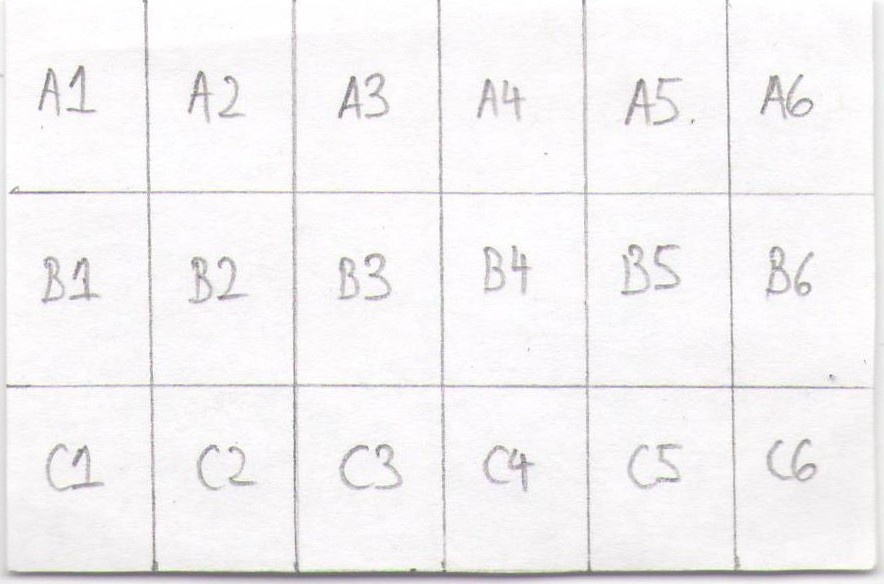 A1 A2 A3 A4 A5. A6
B1 B2 B3 B4 B5 B6
C1 C2 C3 C4 C5 C6